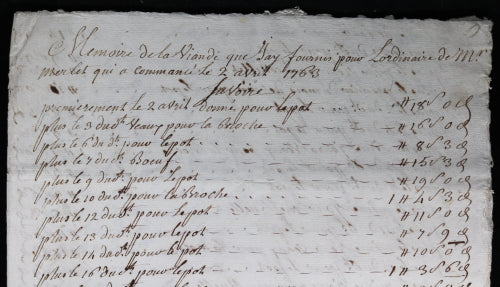 Memoire de la Viande que Jay fournis pour Lordinaire de Mr
merlet qui a commance le 2 avril 1763
Savoire
premierement le 2 avril donné pour le pot - # 18 s 0 d
plus le 3 dudt Veaux pour la Broche - # 16 s 0 d
plus le 6 dudt pour le pot - # 8 s 3 d
plus le 7 dudt Boeuf - # 15 s 3 d
plus le 9 dudt pour Le pot - # 19 s 0 d
plus le 10 dudt pour la Broche - 1 # 4 s 3 d
plus le 12 dudt pour le pot - # 11 s 0 d
plus le 13 dudt pour le pot - # 7 s 9 d
plus le 14 dudt pour le pot - # 10 s 0 d
plus le 16 dudt pour le pot - 1 # 3 s 6 d